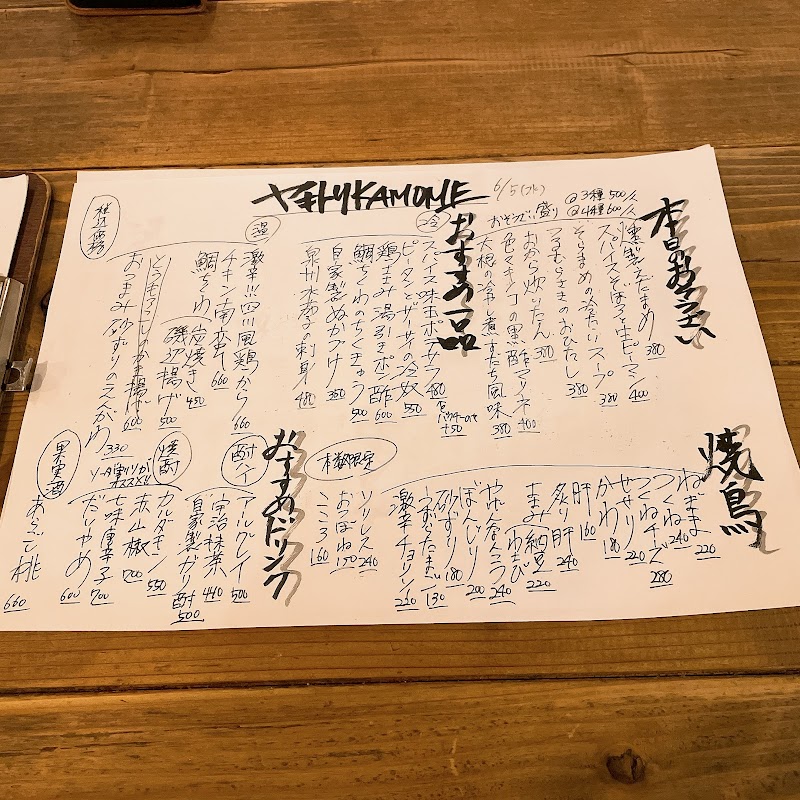 ヤキトリKAMOME
6/5(水)
本日のおそうざい
おそうざい盛り
3種 500/人
4種 600/人
燻製えだまめ 380
スパイスそぼろと生ピーマン 400
そらまめの冷たいスープ 380
つるむらさきのおひたし 380
おから炊いたん 380
色々キノコの黒酢マリネ 400
大根の冷し煮すだち風味 380
おすすめ一品
冷
スパイス味玉ポテサラ 480
+50
ピータンとザーサイの冷奴 550
鶏ささみ湯引きポン酢 600
鯛ちくわのちくきゅう 500
自家製ぬかづけ 380
泉州水茄子の刺身 480
温
激辛!!四川風鶏から 660
チキン南蛮 660
鯛ちくわ
炭焼き 450
磯辺揚げ 500
とうもろこしのかき揚げ 600
おつまみ砂ずりのえんがわ 330
税込価格
焼鳥
ねぎま 220
つくね 240
つくねチーズ 280
せせり 220
かわ 180
肝 160
炙り肝 240
ささみ
わさび
納豆 220
やげんなんこつ 240
ぼんじり 200
砂ずり 180
うずらたまご 130
激辛チョリソー 220
本数限定
ソリレス 240
おびぼね 150
こころ 160
おすすめドリンク
酎ハイ
アールグレイ 500
宇治抹茶 440
自家製ガリ酎 500
焼酎
ソーダ割りがオススメ!!
カルダモン 550
赤山椒 700
七味唐辛子 700
だいやめ 600
果実酒
あらごし桃 660